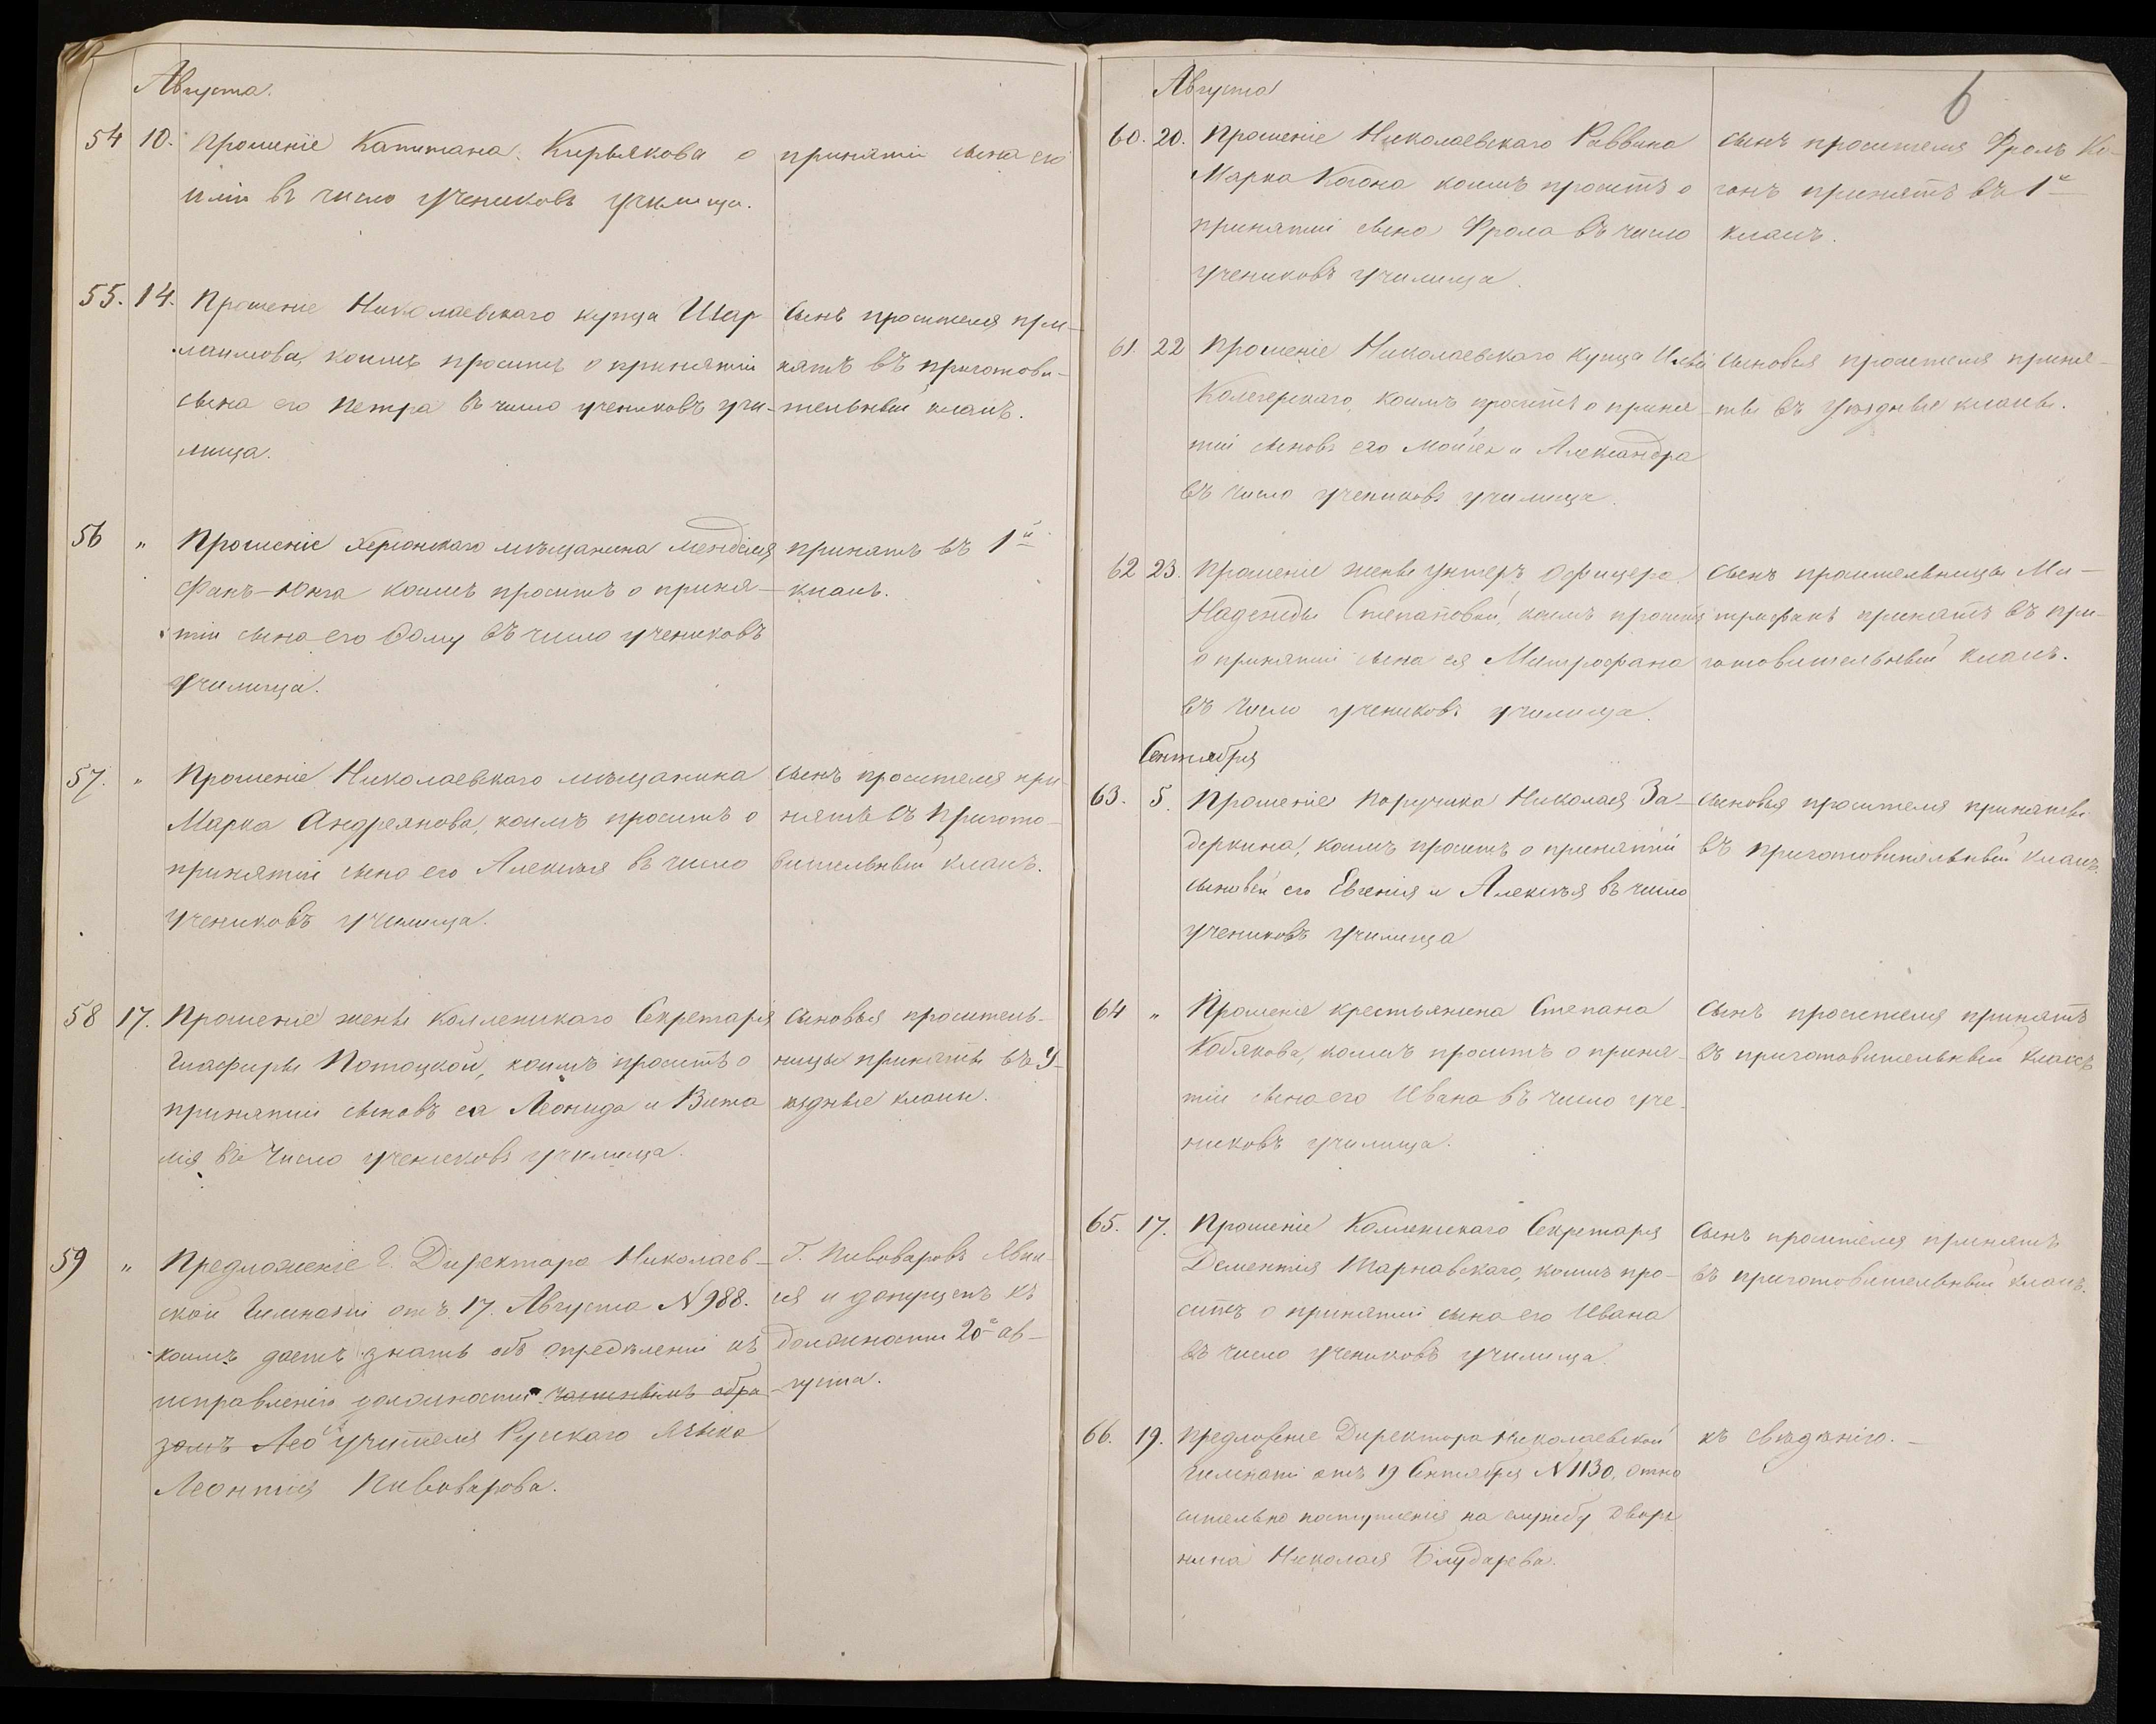 Августа.
54 10. Прошеніе Капитана Кирьякова о принятіи сына его
Иліи въ число учениковъ училища.
55. 14. Прошеніе Николаевскаго купца Шар
коимъ проситъ о принятіи
сына его Петра въ число учениковъ учи-
лища.
Сынъ просителя при-
нятъ въ приготови-
тельный класъ.
56 „ Прошеніе Херсонскаго мѣщанина Менделя
Фанъ-Юнга коимъ проситъ о приня-
тіи сына его въ число учениковъ
училища.
принятъ въ 1й
класъ.
57. „ Прошеніе Николаевскаго мѣщанина
Марка Андреянова, коимъ проситъ о
принятіи сына его Алексѣя въ число
учениковъ училища.
сынъ просителя при-
нятъ въ пригото-
вительный класъ.
58 17. Прошеніе жены Коллежскаго Секретаря
Глафиры Потоцкой, коимъ проситъ о
принятіи сыновъ ея Леонида и Вита
лія въ число учениковъ училища.
сыновья проситель-
ницы приняты въ У-
ѣздные класы.
59 „ Предложеніе Г. Директора Николаев-
ской Гимназіи отъ 17. Августа №988.
коимъ даетъ знать объ опредѣленіи къ
исправленію должности частнымъ обра
зомъ Лео учителя Рускаго Языка
Леонтія Пивоварова.
Г. Пивоваровъ явил-
ся и допущенъ къ
должности 20го ав-
густа.
6
Августа
60. 20. Прошеніе Николаевскаго Раввина
Марка Когона коимъ проситъ о
принятіи сына Фрола въ число
учениковъ училища.
сынъ просителя Фролъ Ко-
ганъ принятъ въ 1й
класъ.
61. 22 Прошеніе Николаевскаго Купца
коимъ проситъ о приня
тіи сыновъ его Мойсея и Александра
въ число учениковъ училища.
сыновья просителя приня-
ты въ Уѣздные класы.
62 23. Прошеніе жены унтеръ Офицера
Надежды Степановой, коимъ проситъ
о принятіи сына ея Митрофана
въ число учениковъ училища.
Сынъ просительницы Ми-
трофанъ принятъ въ при-
готовительный класъ.
Сентября
63. 5. Прошеніе Поручика Николая За-
деркина, коимъ проситъ о принятіи
сыновей его Евгенія и Алексѣя въ число
учениковъ училища
сыновья просителя приняты
въ приготовительный класъ.
64 „ Прошеніе крестьянина Степана
Кобякова, коимъ проситъ о приня-
тіи сына его Ивана въ число уче-
никовъ училища.
Сынъ просителя принятъ
въ приготовительный класъ
65. 17. Прошеніе Коллежскаго Секретаря
Дементія Тарнавскаго, коимъ про-
ситъ о принятіи сына его Ивана
въ число учениковъ училища.
Сынъ просителя принятъ
въ приготовительный класъ.
66. 19. Предложеніе Директора Николаевской
Гимназіи отъ 19 Сентября №1130, отно
сительно поступленія на службу Дворя
нина Николая
къ свѣдѣнію.